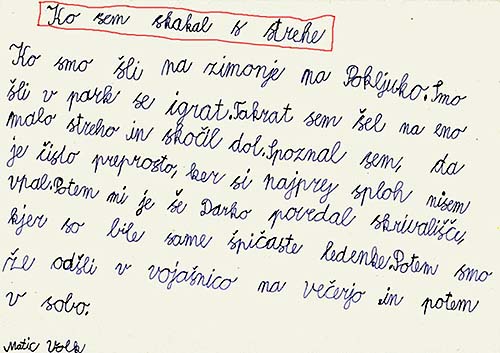 Ko sem skakal s strehe
Ko smo šli na zimonje na Pokljuko. Smo
šli v park se igrat. Takrat sem šel na eno
malo streho in skočil dol. Spoznal sem, da
je čisto preprosto, ker si najprej sploh nisem
vpal. Potem mi je še Darko povedal skrivališče,
kjer so bile same špičaste ledenke. Potem smo
že odšli v vojašnico na večerjo in potem
v sobo.
Matic Volk